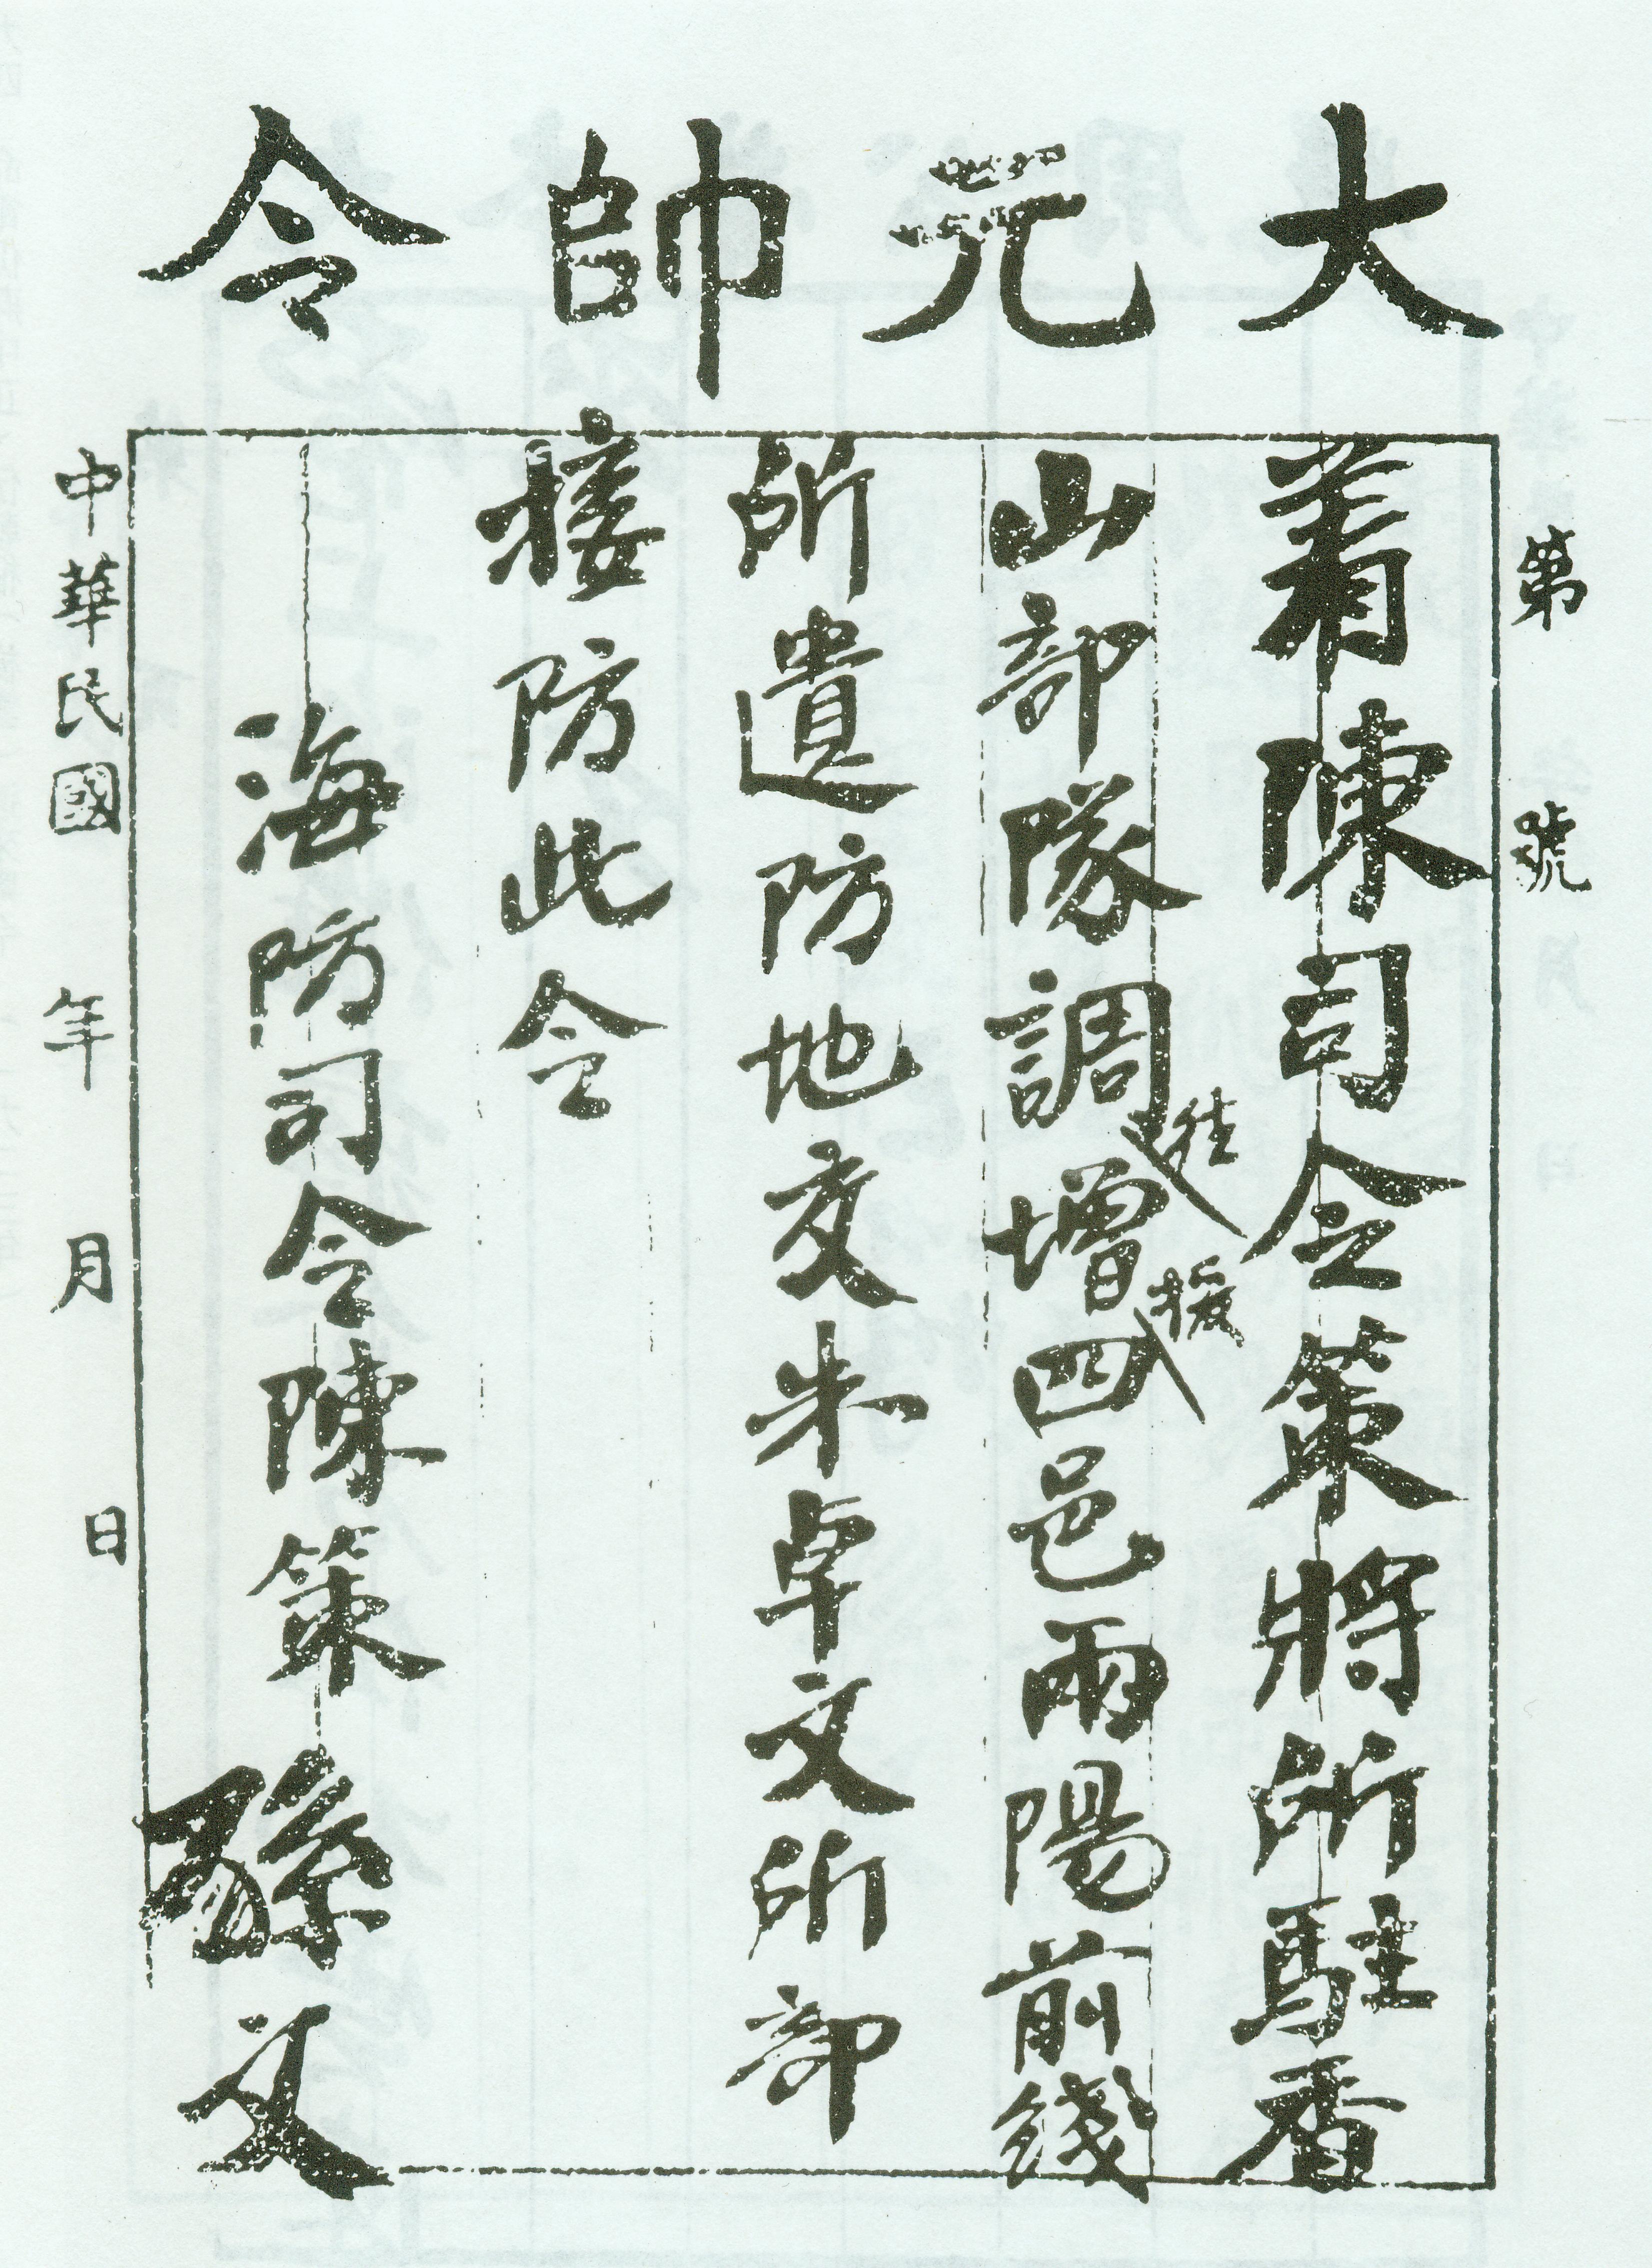 大元帥令
第　號
着陳司令策將所駐香
山部隊調往增援四邑兩陽前綫
所遺防地交朱卓文所部
接防此令
海防司令陳策
孫文
中華民國　年　月　日